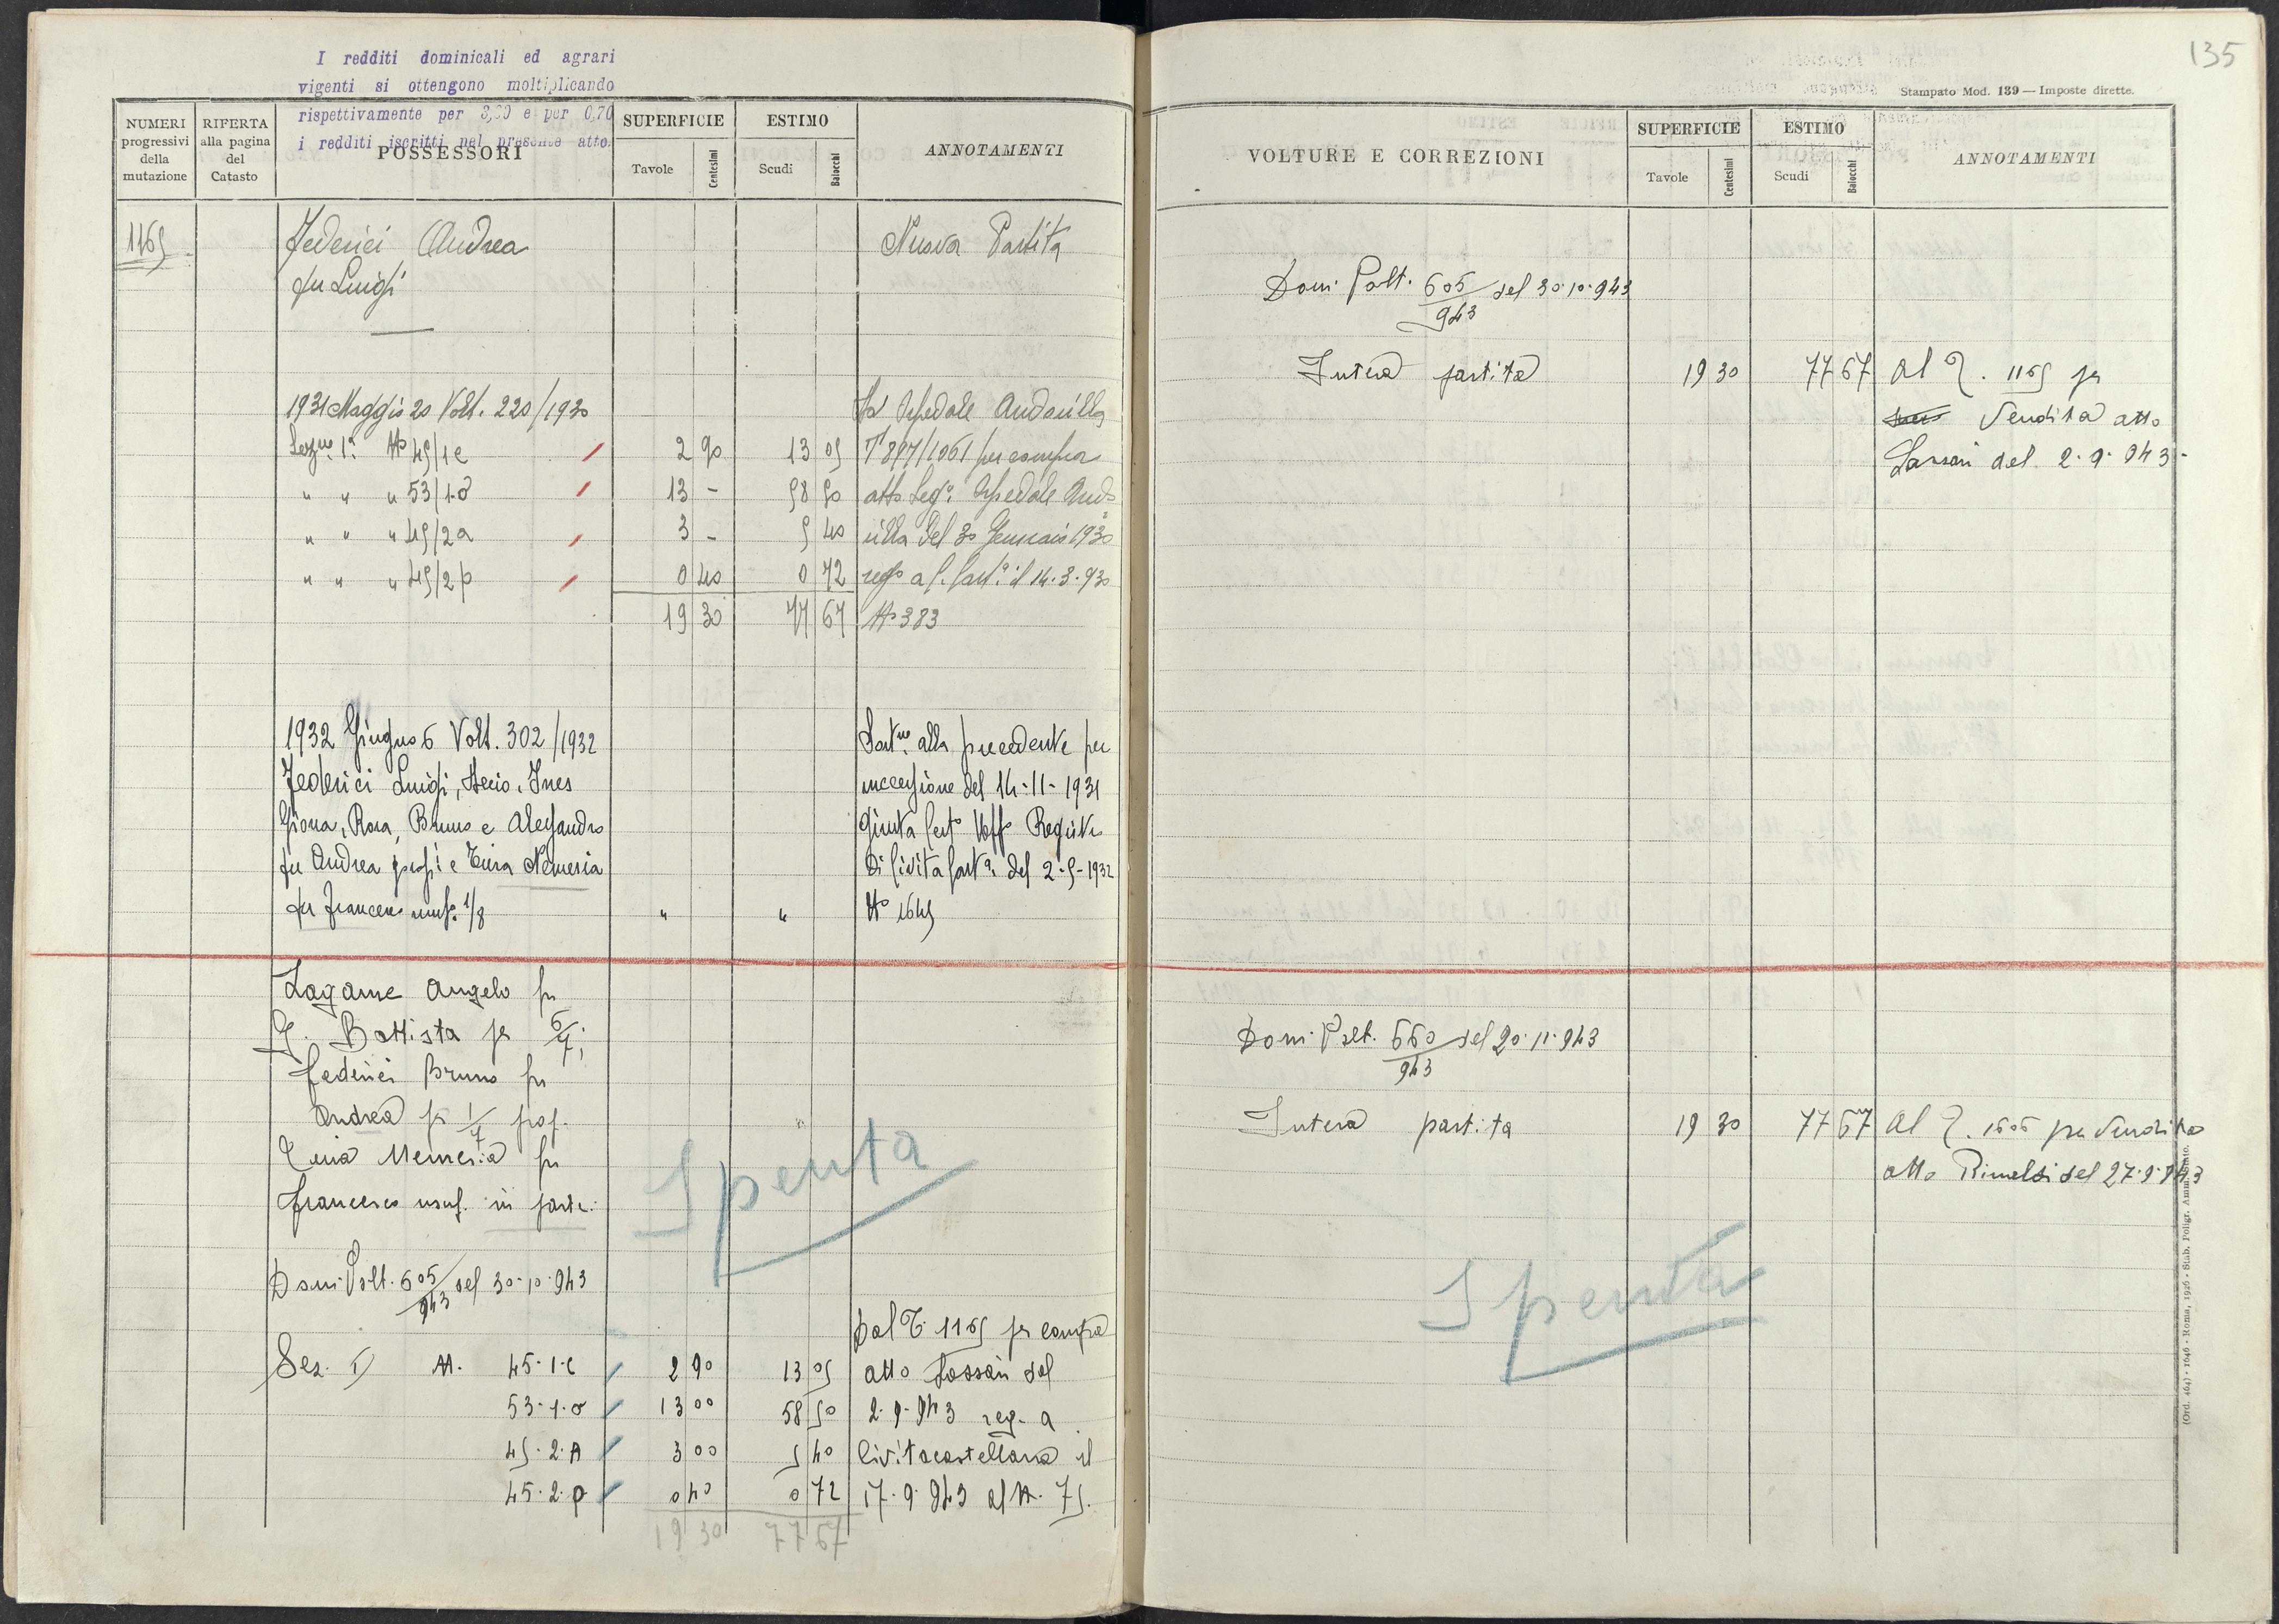 135
I redditi dominicali ed agrari
vigenti si ottengono moltiplicando
rispettivamente per 3,00 e per 0,70
i redditi iscritti nel presente atto.
NUMERI progressivi della mutazione
RIFERTA alla pagina del Catasto
POSSESSORI
SUPERFICIE
Tavole Centesimi
ESTIMO
Scudi Baiocchi
ANNOTAMENTI
1165 Federici Andrea Nuova Partita
fu Luigi
1931 Maggio 20 Volt. 220/1930 Da Ospedale Andosilla
Sezne 1a No 45/1c 2 90 13 05 T 897/1061 per compra
" " " 53/1-o 13 - 58 50 atto Sego Ospedale Ando
" " " 45/2a 3 - 5 40 silla del 30 Gennaio 1930
" " " 45/2p 0 40 0 72 rego a C. Casta il 14-3-930
19 30 77 67 No 383
1932 Giugno 6 Volt. 302/1932 alla precedente per
Federici Luigi, Ines successione del 14-11-1931
Giona, Rosa, Bruno e Alessandro giusta Certo Uffo Registro
fu Andrea propi e Nemesia di Civita Casta del 2-5-1932
fu Francesco usufa 1/8 " " No 1645
Lagame Angelo fu
G. Battista per 6/7;
Federici Bruno fu
Andrea per 1/7 prop.
Nemesia fu
Francesco usuf. in parte.
Dom. Volt. 605/943 del 30-10-943
Spenta
Dal T. 1165 per compra
Sez. I) N. 45-1-c 2 90 13 05 atto Sassari del
53-1-o 13 00 58 50 2-9-943 reg. a
45-2-A 3 00 5 40 Civitacastellana il
45-2-p 0 40 0 72 17-9-943 al N. 75.
19 30 77 67
Stampato Mod. 139 — Imposte dirette.
VOLTURE E CORREZIONI
SUPERFICIE
Tavole Centesimi
ESTIMO
Scudi Baiocchi
ANNOTAMENTI
Dom. Volt. 605/943 del 30-10-943
Intera partita 19 30 77 67 Al T. 1165 per
Vendita atto
Sassari del 2-9-943-
Dom. Volt. 660/943 del 20-11-943
Intera partita 19 30 77 67 Al T. 1606 per Vendita
atto Rinaldi del 27-9-943
Spenta
(Ord. 464) - 1646 - Roma, 1926 - Stab. Poligr. Amm.